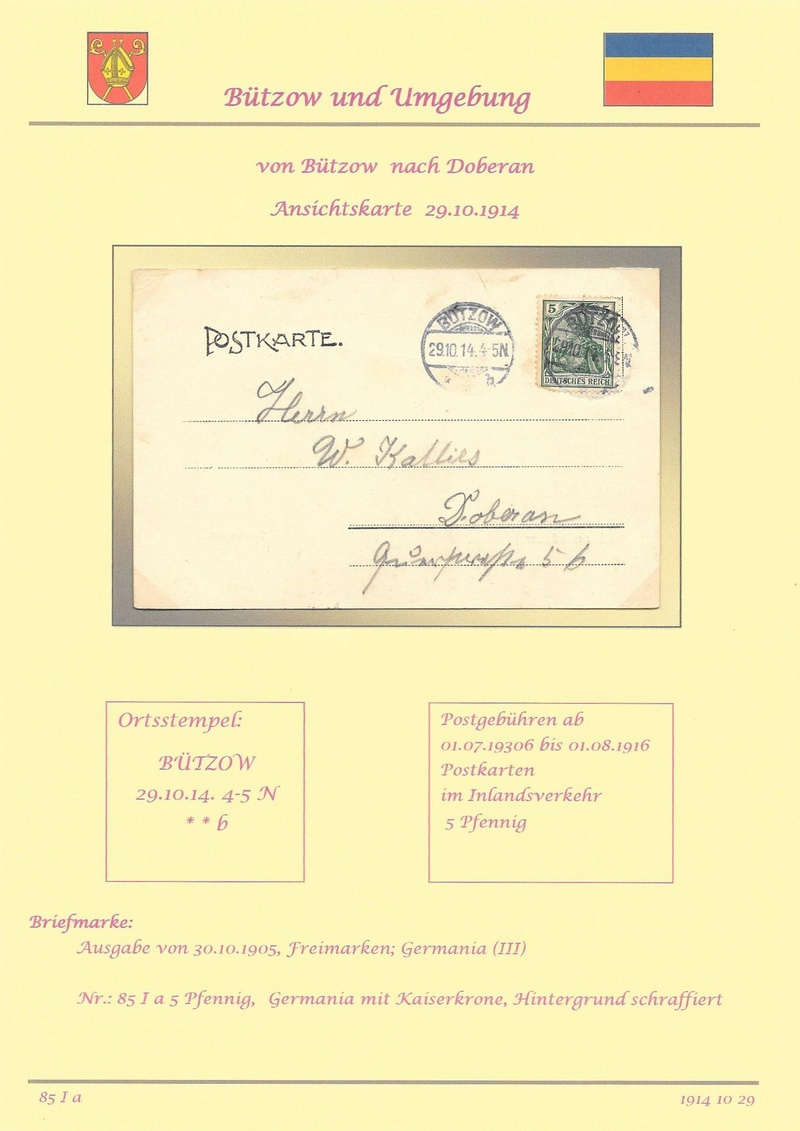 Bützow und Umgebung
von Bützow nach Doberan
Ansichtskarte 29.10.1914
POSTKARTE.
BÜTZOW
29.10.14.4-5N
* b
5 5
BÜTZOW
29.10.14
DEUTSCHES REICH
Herrn
W. Kallies
Doberan
5 b
Ortsstempel:
BÜTZOW
29.10.14. 4-5 N
* * b
Postgebühren ab
01.07.19306 bis 01.08.1916
Postkarten
im Inlandsverkehr
5 Pfennig
Briefmarke:
Ausgabe von 30.10.1905, Freimarken; Germania (III)
Nr.: 85 I a 5 Pfennig, Germania mit Kaiserkrone, Hintergrund schraffiert
85 I a
1914 10 29